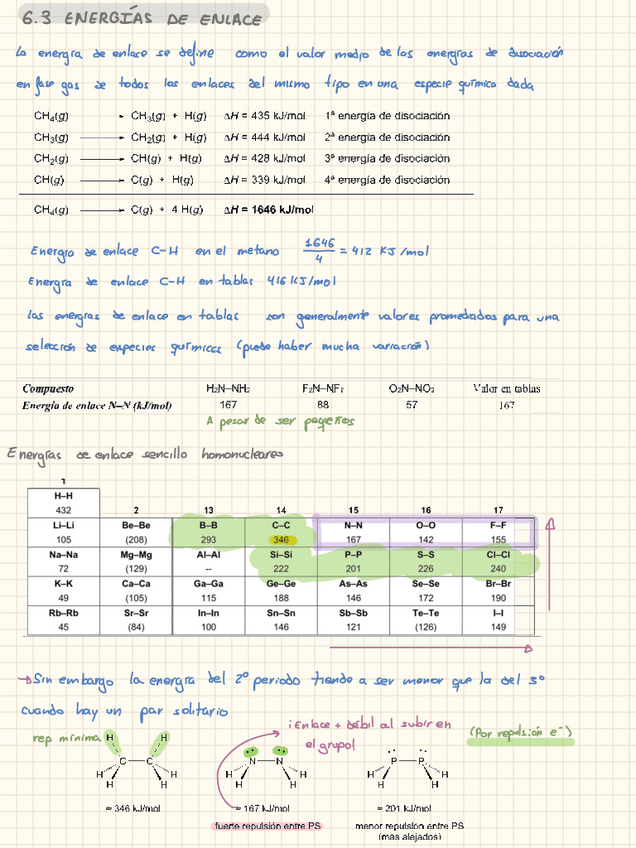 6.3 ENERGÍAS DE ENLACE
La energía de enlace se define como el valor medio de las energías de disociación
en fase gas de todos los enlaces del mismo tipo en una especie química dada
CH₄(g) → CH₃(g) + H(g) ΔH = 435 kJ/mol 1ª energía de disociación
CH₃(g) → CH₂(g) + H(g) ΔH = 444 kJ/mol 2ª energía de disociación
CH₂(g) → CH(g) + H(g) ΔH = 428 kJ/mol 3ª energía de disociación
CH(g) → C(g) + H(g) ΔH = 339 kJ/mol 4ª energía de disociación
CH₄(g) → C(g) + 4 H(g) ΔH = 1646 kJ/mol
Energía de enlace C-H en el metano 1646/4 = 412 KJ/mol
Energía de enlace C-H en tablas 416 KJ/mol
Las energías de enlace en tablas son generalmente valores promediados para una
selección de especies químicas (puede haber mucha variación)
Compuesto H₂N–NH₂ F₂N–NF₂ O₂N–NO₂ Valor en tablas
Energía de enlace N–N (kJ/mol) 167 88 57 167
A pesar de ser pequeños
Energías de enlace sencillo homonucleares
1
H–H
432 2 13 14 15 16 17
Li–Li Be–Be B–B C–C N–N O–O F–F
105 (208) 293 346 167 142 155
Na–Na Mg–Mg Al–Al Si–Si P–P S–S Cl–Cl
72 (129) -- 222 201 226 240
K–K Ca–Ca Ga–Ga Ge–Ge As–As Se–Se Br–Br
49 (105) 115 188 146 172 190
Rb–Rb Sr–Sr In–In Sn–Sn Sb–Sb Te–Te I–I
45 (84) 100 146 121 (126) 149
→ Sin embargo la energía del 2º periodo tiende a ser menor que la del 3º
cuando hay un par solitario
¡Enlace + débil al subir en
el grupo! (Por repulsión e⁻)
rep mínima H H
C C N N P P
H H H H H H H H H H H H
≈ 346 kJ/mol ≈ 167 kJ/mol ≈ 201 kJ/mol
fuerte repulsión entre PS menor repulsión entre PS
(mas alejados)